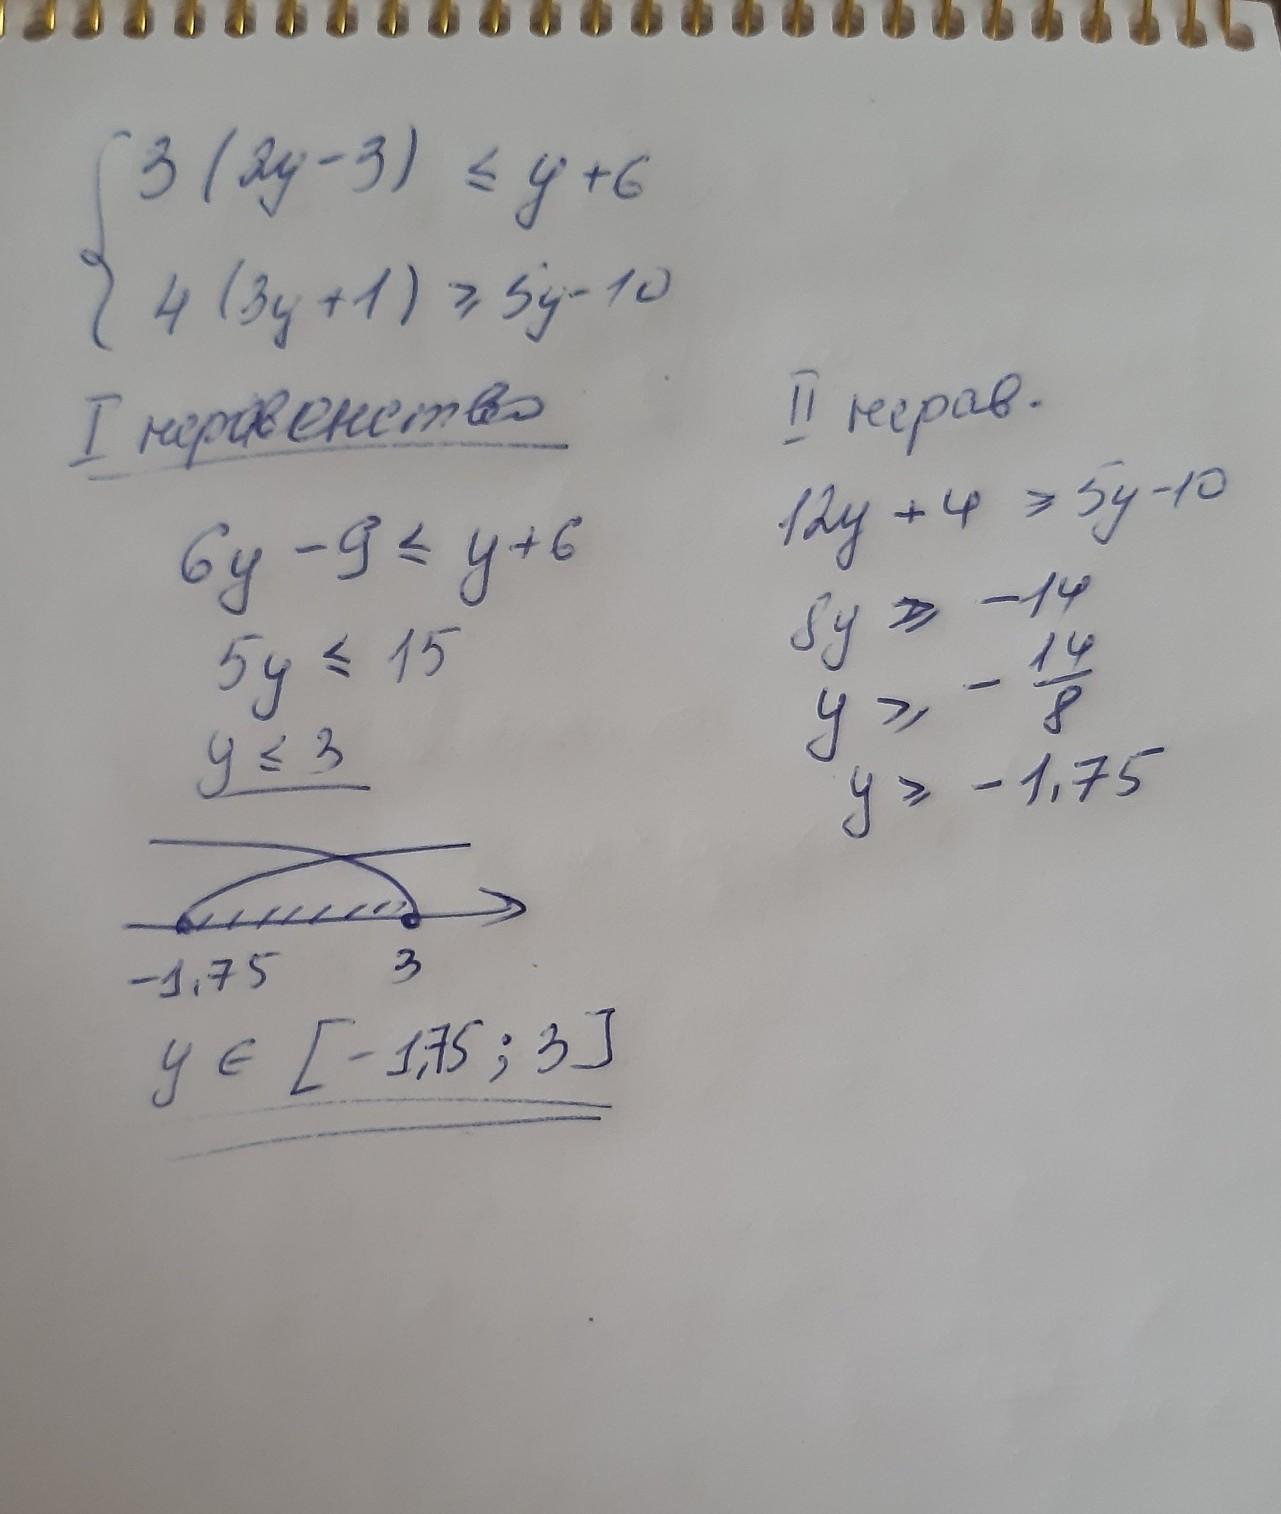 3(2y-3) ≤ y+6
4(3y+1) ≥ 5y-10
I неравенство
6y-9 ≤ y+6
5y ≤ 15
y ≤ 3
II нерав.
12y+4 ≥ 5y-10
8y ≥ -14
y ≥ -14/8
y ≥ -1,75
-1,75 3
y ∈ [-1,75; 3]